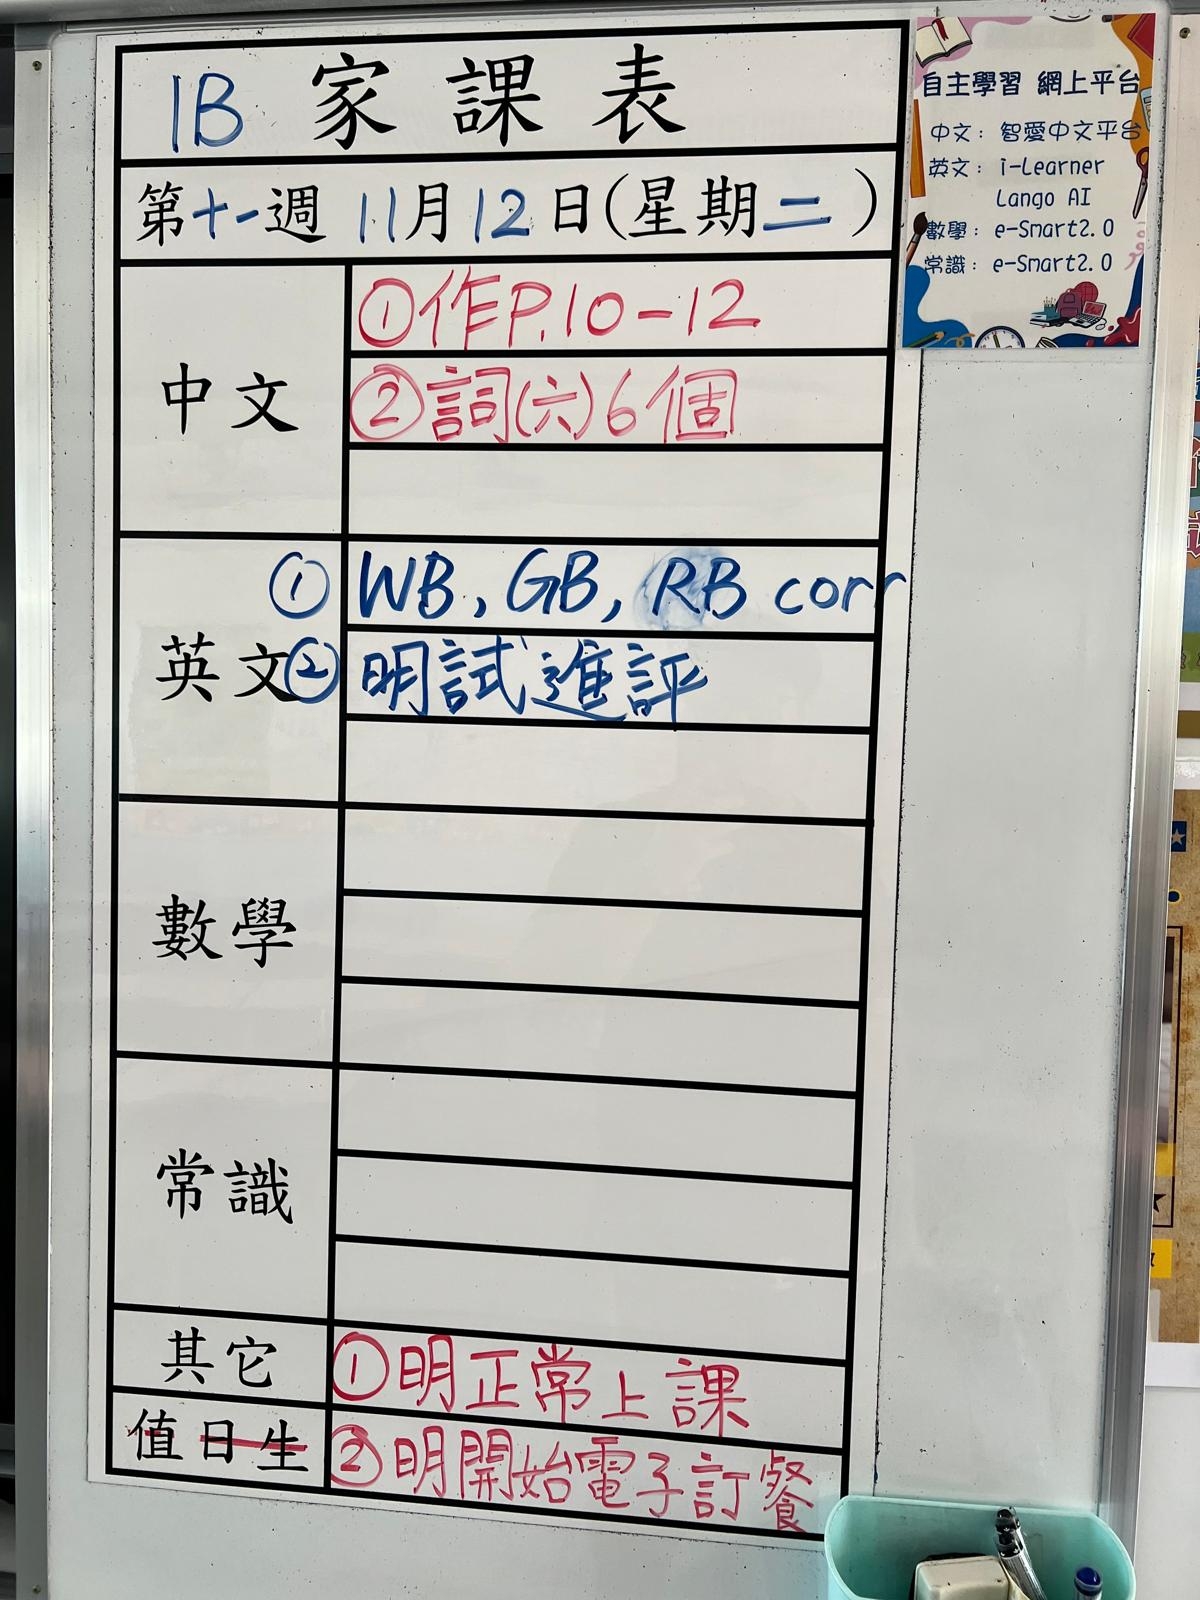 1B 家課表
第十一週 11月12日(星期二)
中文
①作P.10-12
②詞(六)6個
英文
① WB, GB, RB corr
② 明試進評
數學
常識
其它
①明正常上課
值日生
②明開始電子訂餐
自主學習 網上平台
中文：智愛中文平台
英文：i-Learner
Lango AI
數學：e-Smart2.0
常識：e-Smart2.0